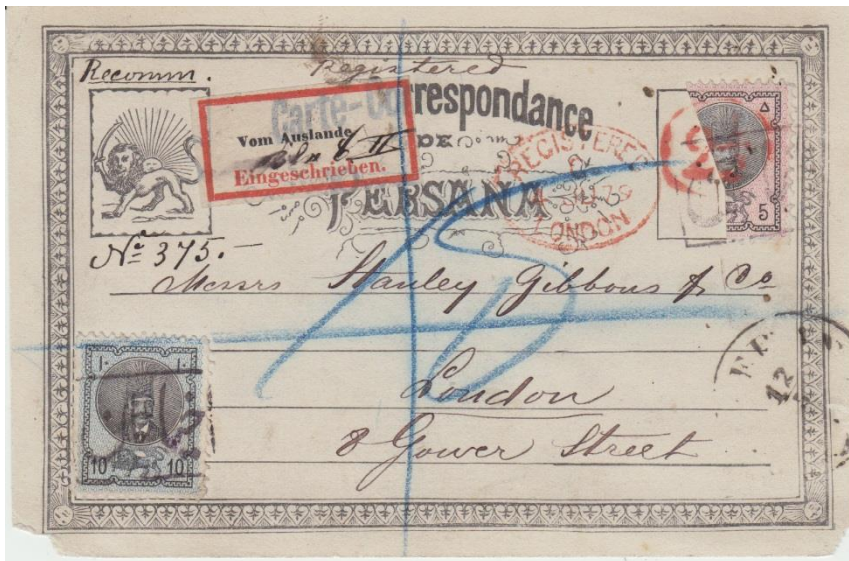 Recomm.
Registered
Carte-Correspondance
DE
PERSANA
Vom Auslande
Eingeschrieben.
REGISTERED
LONDON
5
No 375.-
Messrs Stanley Gibbons & Co
London
8 Gower Street
۱۰ ۱۰
10 10
12